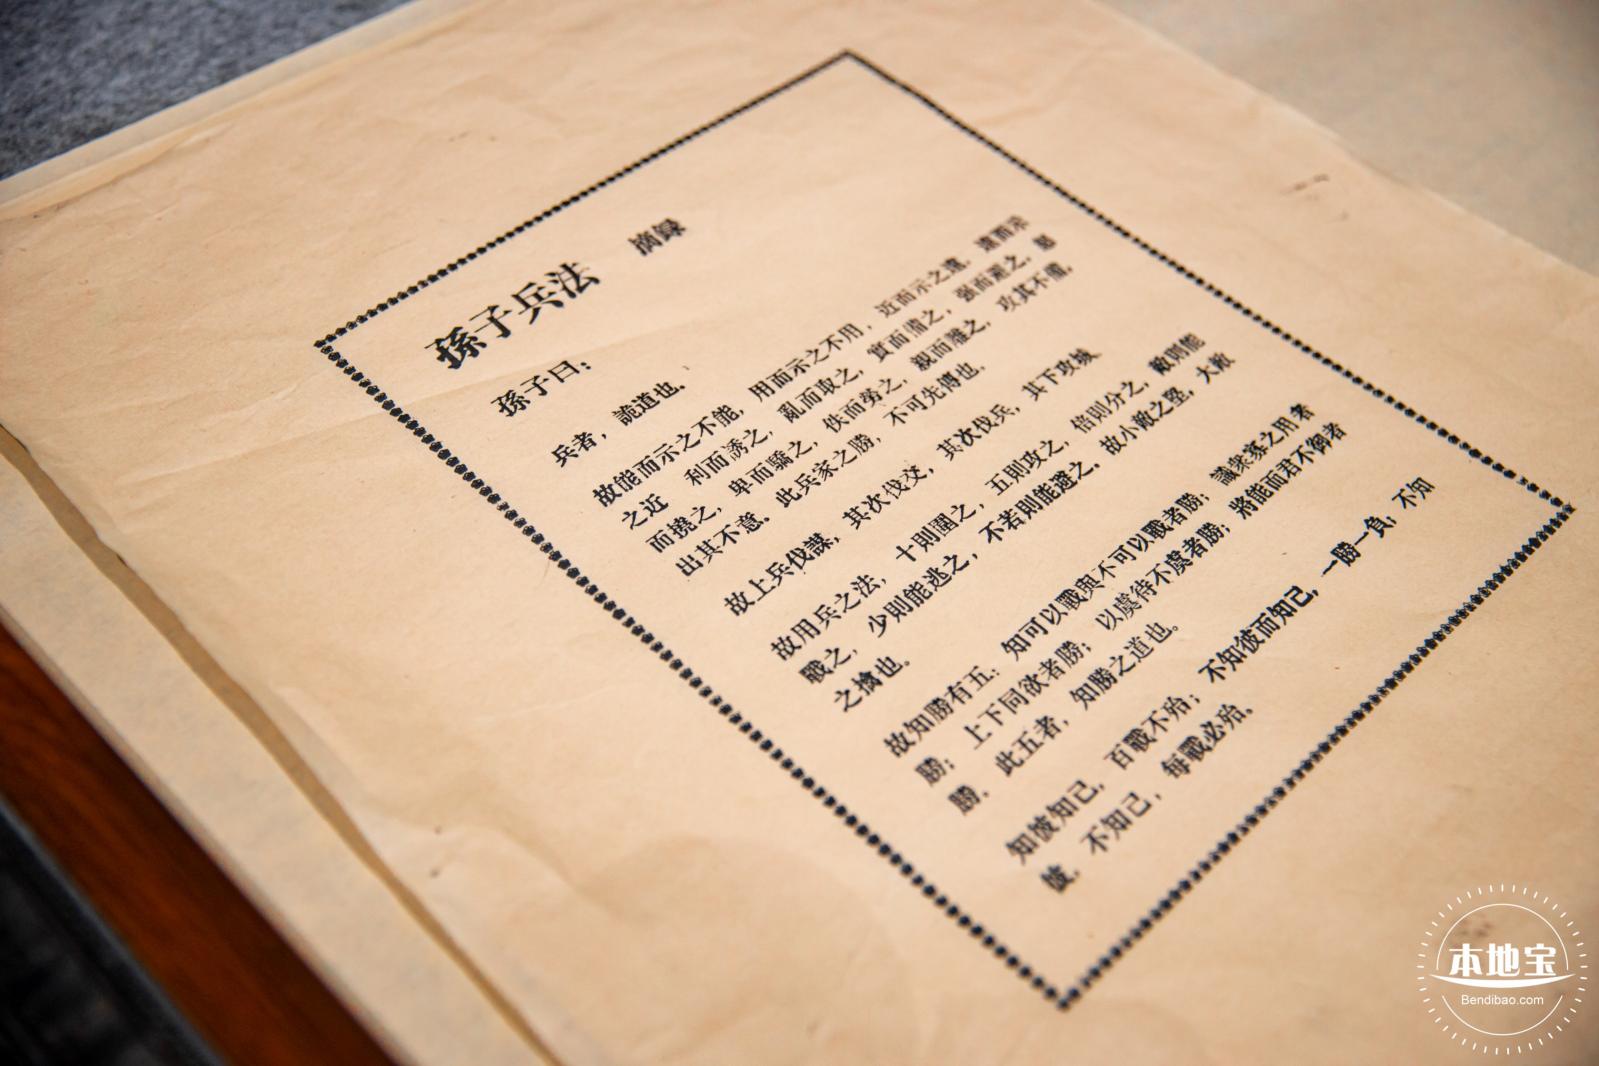 孫子兵法 摘録
孫子曰：
兵者，詭道也。
故能而示之不能，用而示之不用，近而示之遠，遠而示
之近 利而誘之，亂而取之，實而備之，强而避之，怒
而撓之，卑而驕之，佚而勞之，親而離之，攻其不備，
出其不意。此兵家之勝，不可先傅也。
故上兵伐謀，其次伐交，其次伐兵，其下攻城
故用兵之法，十則圍之，五則攻之，倍則分之，敵則能
戰之，少則能逃之，不若則能避之。故小敵之堅，大敵
之擒也。
故知勝有五：知可以戰與不可以戰者勝；識衆寡之用者
勝；上下同欲者勝；以虞待不虞者勝；將能而君不御者
勝．此五者，知勝之道也。
知彼知己，百戰不殆；不知彼而知己，一勝一負；不知
彼，不知己，每戰必殆。
本地宝
Bendibao.com